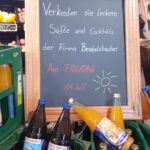 Verkosten sie leckere
Säfte und Cocktails
der Firma Beutelsbacher
Am FREITAG